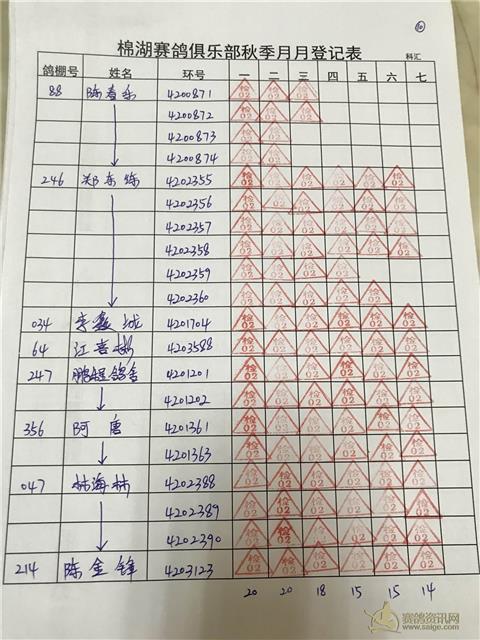 16
棉湖赛鸽俱乐部秋季月月登记表
科汇
鸽棚号 姓名 环号 一 二 三 四 五 六 七
88 陈春乐 4200871 检02 检02 检02
4200872 检02 检02 检02
4200873 检02 检02
4200874 检02 检02
246 郑东炼 4202355 检02 检02 检02 检02 检02 检02
4202356 检02 检02 检02 检02 检02 检02
4202357 检02 检02 检02 检02 检02 检02
4202358 检02 检02 检02 检02 检02 检02
4202359 检02 检02 检02 检02
4202360 检02 检02 检02 检02 检02
034 鑫城 4201704 检02 检02 检02 检02 检02 检02
64 江喜彬 4203588 检02 检02 检02 检02 检02 检02
247 鹏程鸽舍 4201201 检02 检02 检02 检02 检02 检02
4201202 检02 检02 检02 检02 检02 检02
356 阿唐 4201361 检02 检02 检02 检02 检02 检02
4201363 检02 检02 检02 检02 检02 检02
047 林海林 4202388 检02 检02 检02 检02 检02 检02
4202389 检02 检02 检02 检02 检02 检02
4202390 检02 检02 检02 检02 检02 检02
214 陈金锋 4203123 检02 检02 检02 检02 检02 检02
20 20 18 15 15 14
赛鸽资讯网
www.saige.com